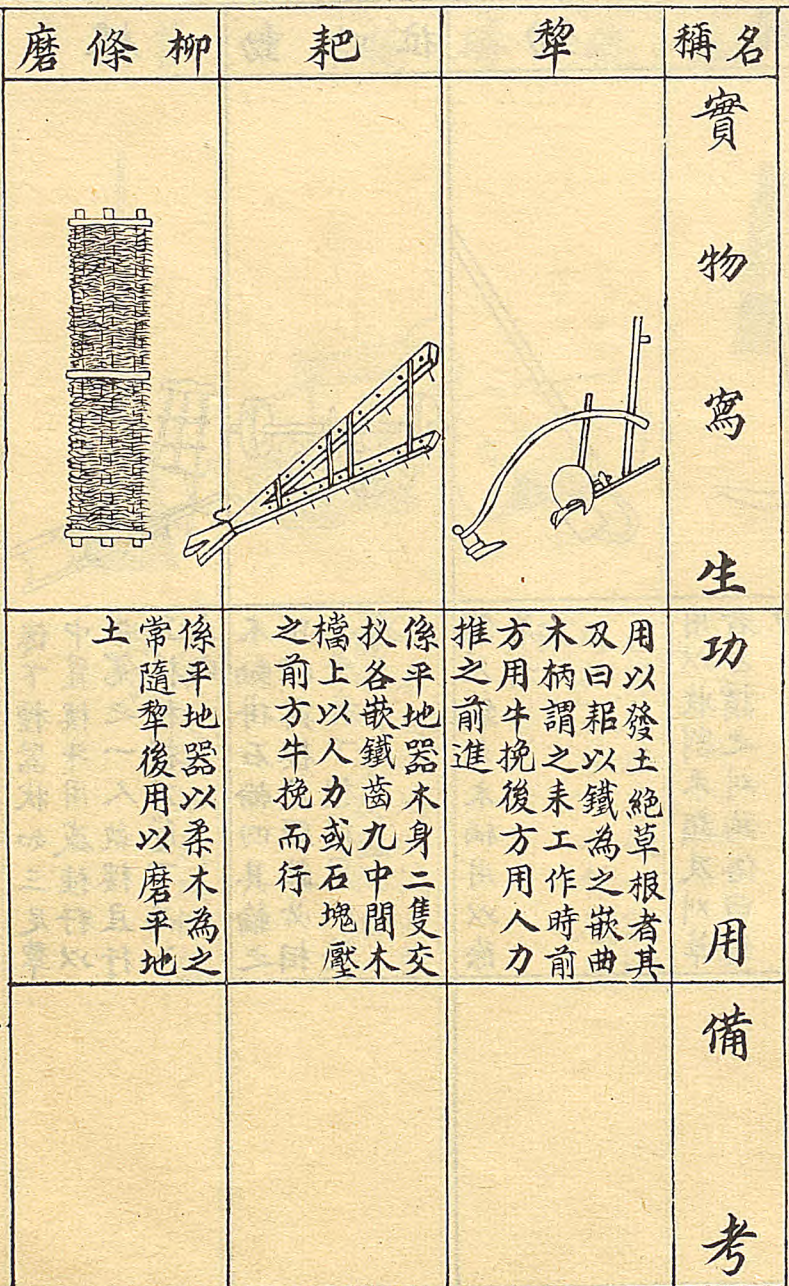 名稱
實物寫生
功用
備考
犂
用以發土絕草根者其
刄曰耜以鐵為之嵌曲
木柄謂之耒工作時前
方用牛挽後方用人力
推之前進
耙
係平地器木身二隻交
扠各嵌鐵齒九中間木
檔上以人力或石塊壓
之前方牛挽而行
柳條磨
係平地器以柔木為之
常隨犂後用以磨平地
土